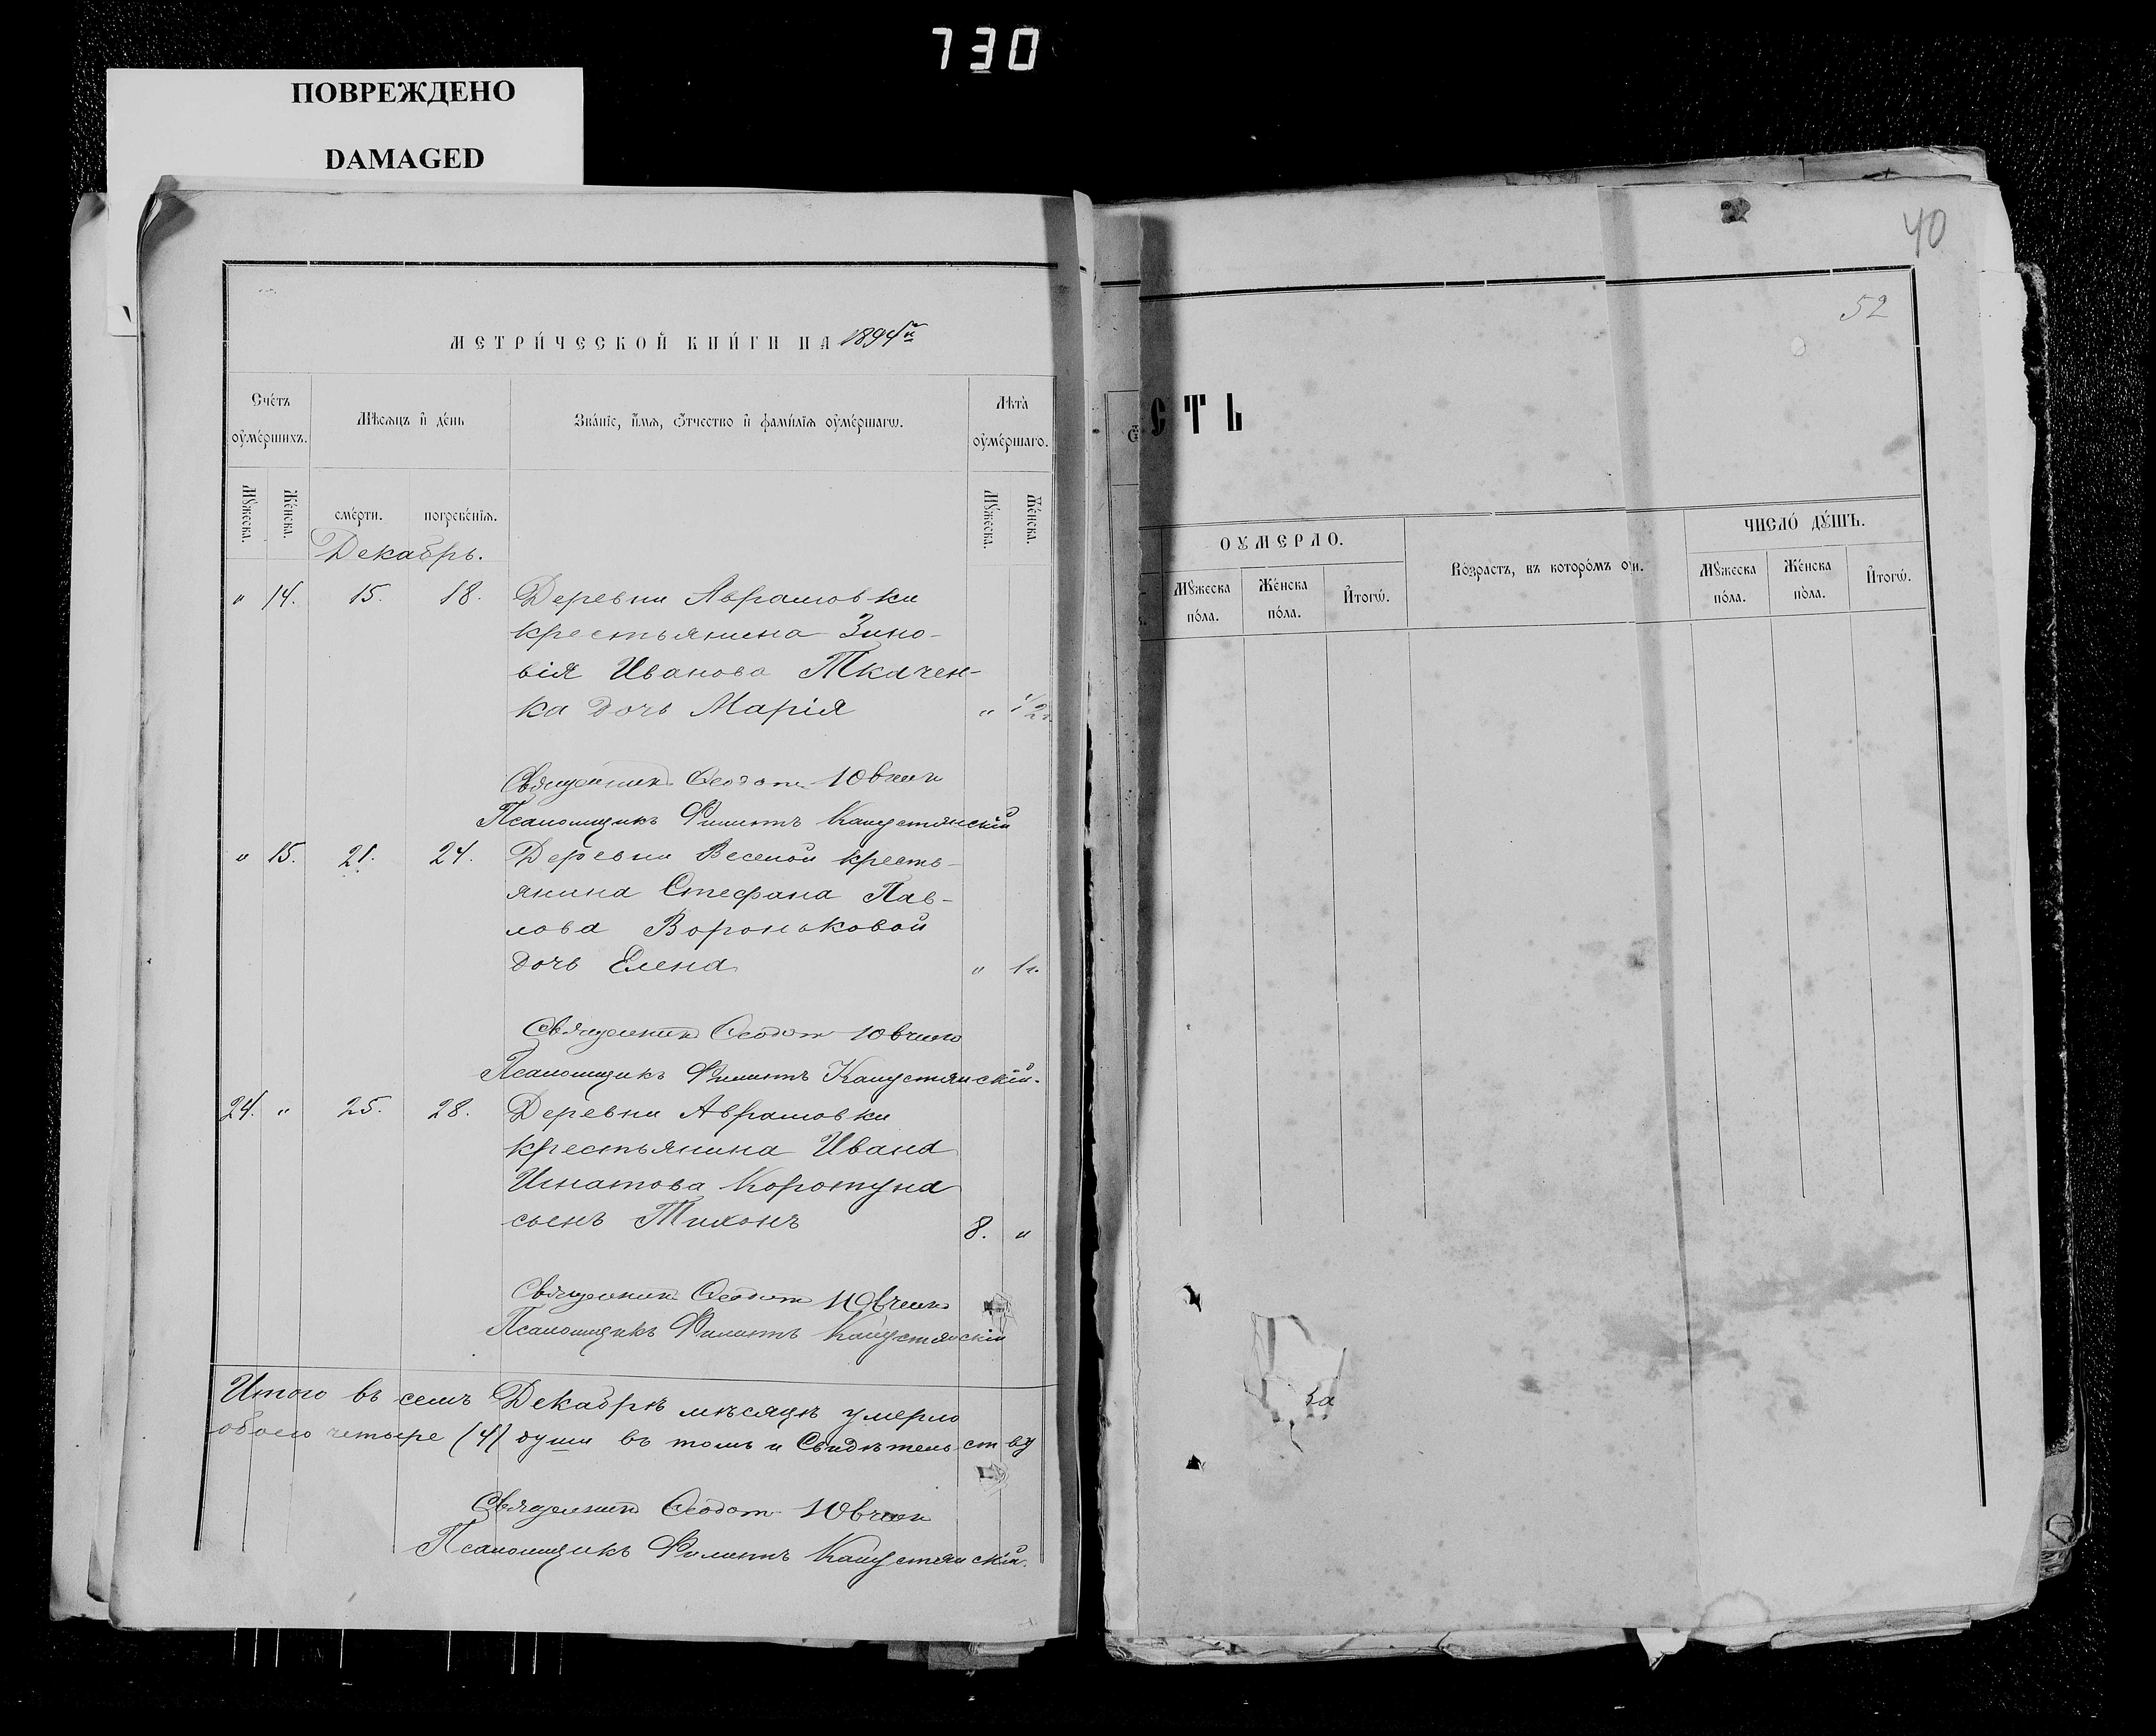 730
ПОВРЕЖДЕНО
DAMAGED
40
52
МЕТРИ́ЧЕСКОЙ КНИ́ГИ НА 1894 й
Сче́тъ оу҆ме́ршихъ.
Мѣсѧцъ и҆ де́нь
Зва́нїе, и҆́мѧ, ѻ҆́тчество и҆ фами́лїѧ оу҆ме́ршагѡ.
Лѣта̀ оу҆ме́ршаго.
Мꙋ́жеска.
Же́нска.
сме́рти.
погребе́нїѧ.
Мꙋ́жеска.
Же́нска.
Декабрь.
" 14. 15. 18. Деревни Аврамовки
крестьянина Зино-
вія Иванова Ткачен-
ка дочь Марія " 1/2
Священник Ѳеодот Ювченко
Псаломщикъ Филиппъ Капустянскій
" 15. 21. 24. Деревни Веселой кресть-
янина Стефана Пав-
лова Вороньковой
дочь Елена " 1 г.
Священник Ѳеодот Ювченко
Псаломщикъ Филиппъ Капустянскій.
24. " 25. 28. Деревни Аврамовки
крестьянина Ивана
Игнатова Коротуна
сынъ Тихонъ 8. "
Священник Ѳеодот Ювченко
Псаломщикъ Филиппъ Капустянскій
Итого въ семъ Декабрѣ мѣсяцѣ умерло
обоего четыре (4) души въ томъ и Свидѣтельству
Священник Ѳеодот Ювченко
Псаломщикъ Филиппъ Капустянскій.
СТЬ
ОУМЕРЛО.
Во́зрастъ, въ кото́ромъ
ЧИСЛО́ ДУ́ШЪ.
Мꙋ́жеска по́ла.
Же́нска по́ла.
И҆тогѡ̀.
Мꙋ́жеска по́ла.
Же́нска по́ла.
И҆тогѡ̀.